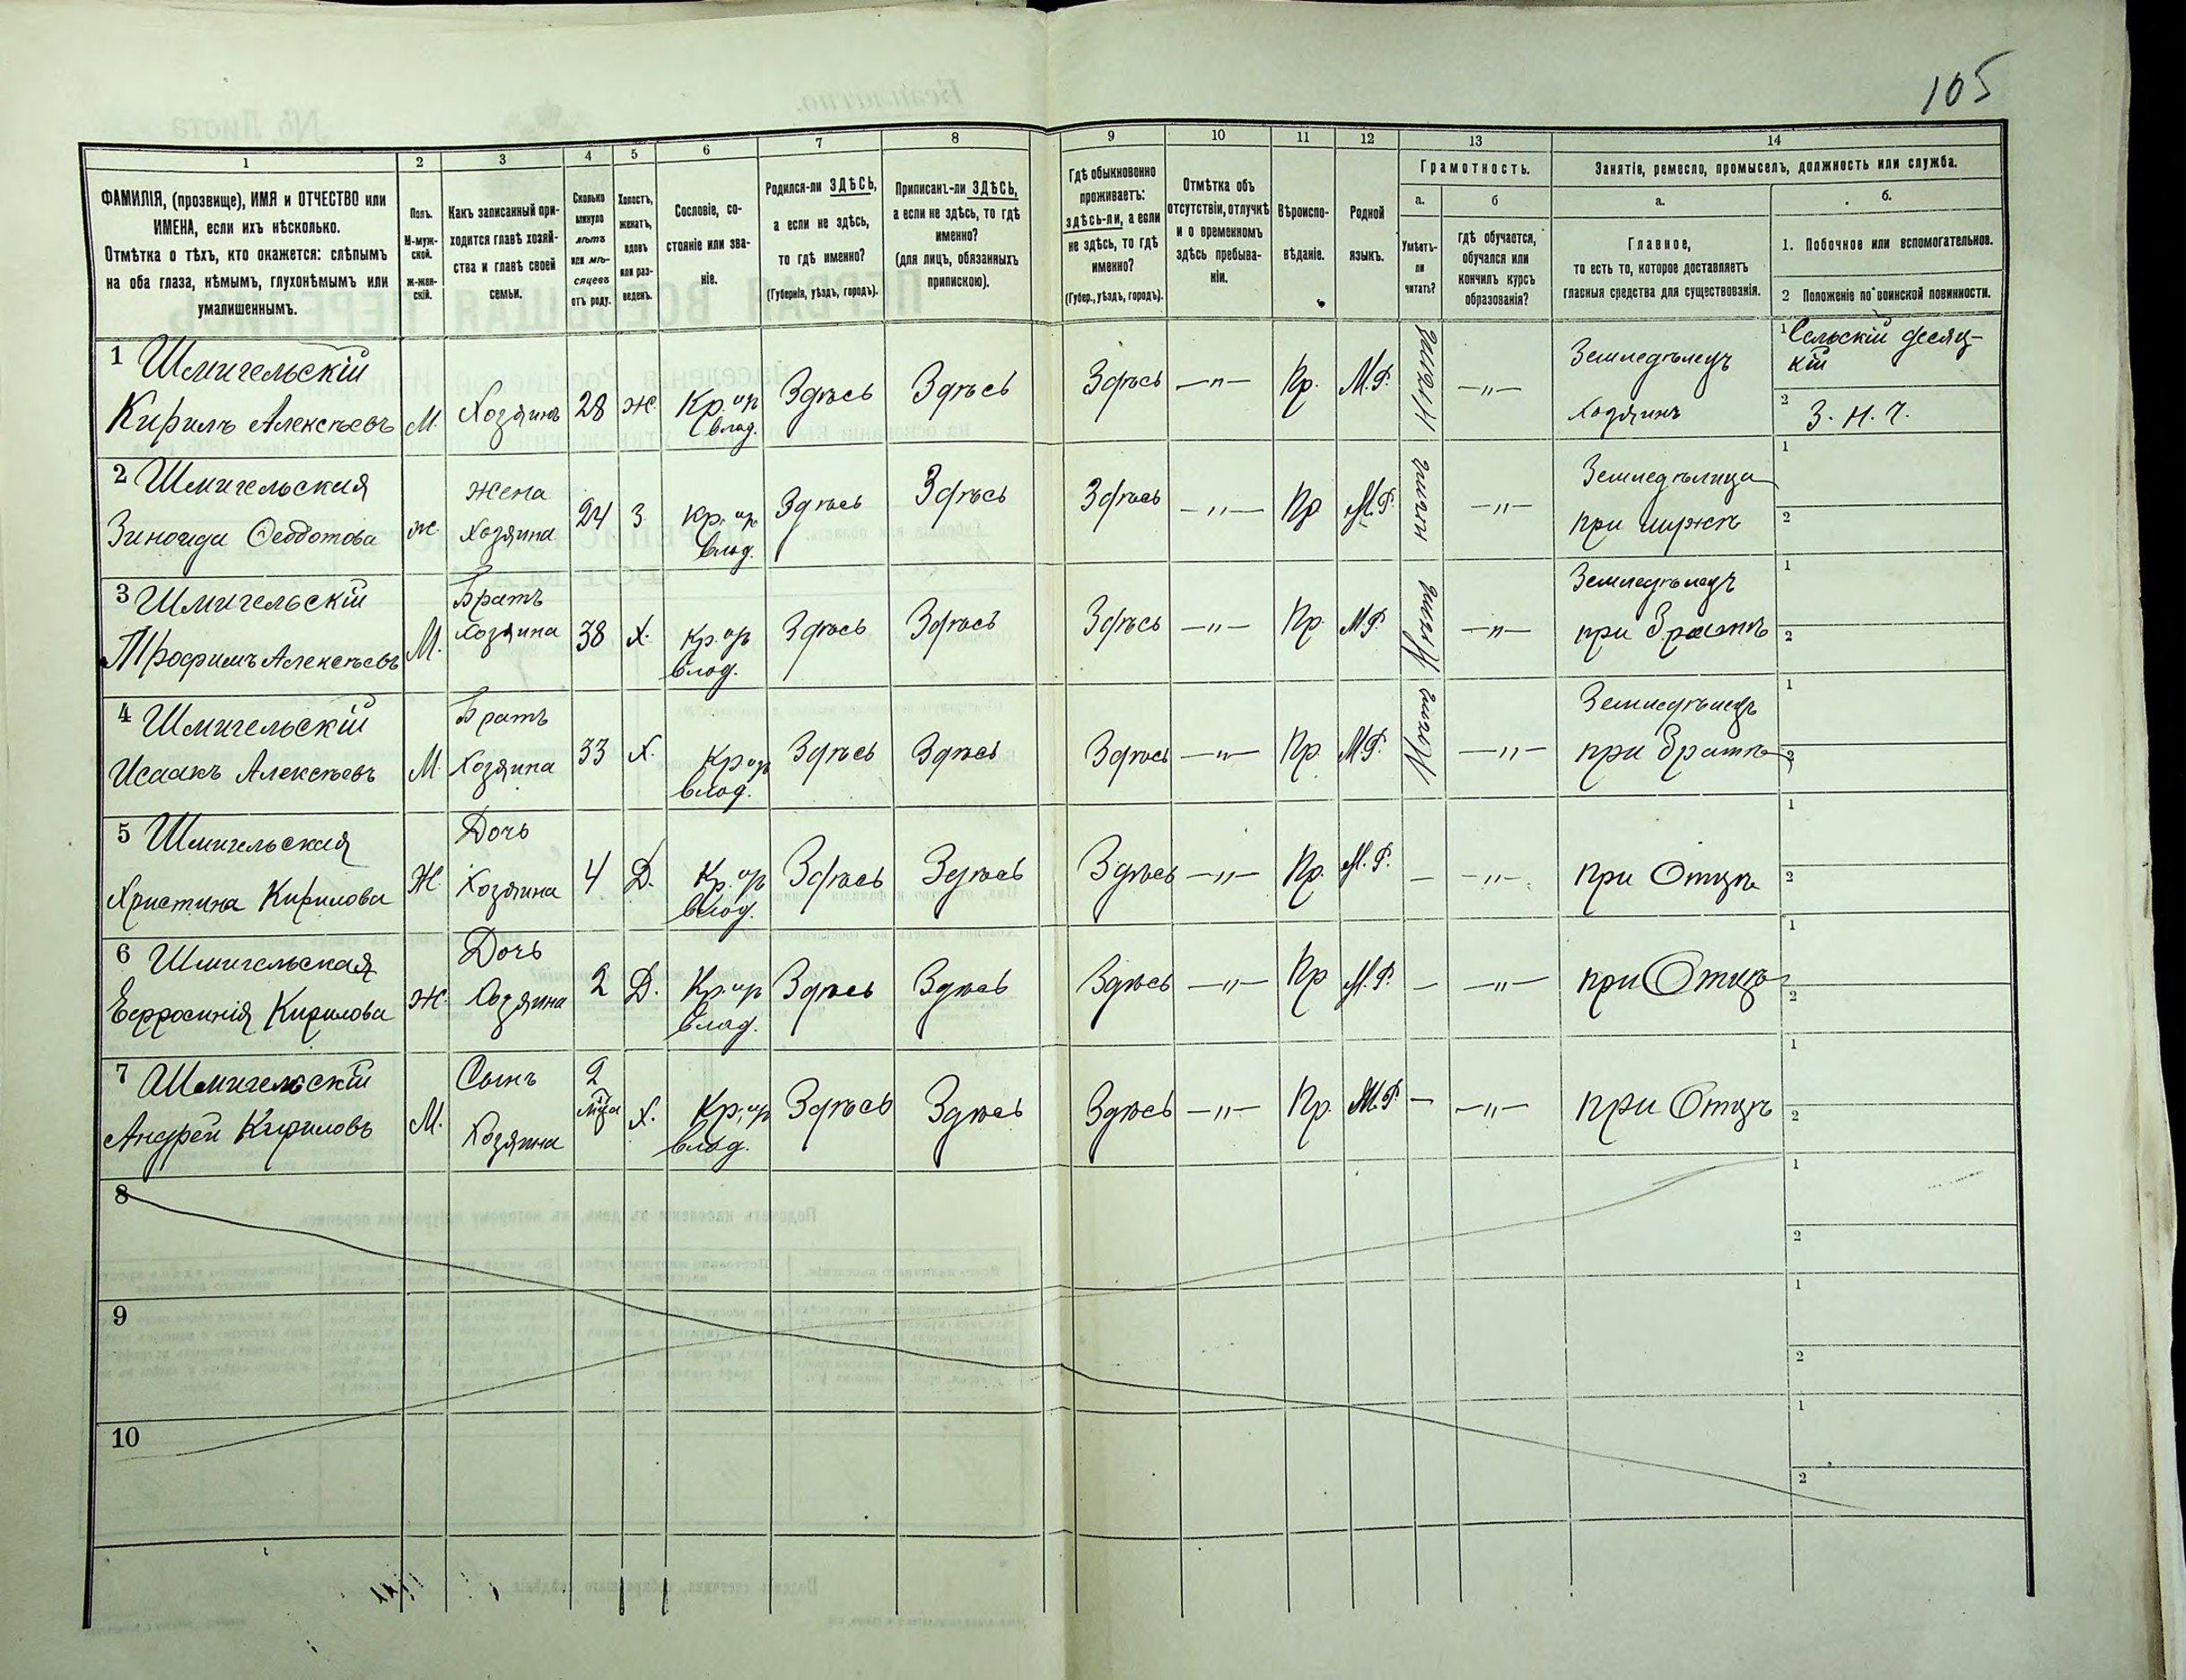 105
1 2 3 4 5 6 7 8 9 10 11 12 13 14
ФАМИЛІЯ, (прозвище), ИМЯ и ОТЧЕСТВО или
ИМЕНА, если ихъ нѣсколько.
Отмѣтка о тѣхъ, кто окажется: слѣпымъ
на оба глаза, нѣмымъ, глухонѣмымъ или
умалишеннымъ.
Полъ.
М-муж-
ской.
ж-жен-
скій.
Какъ записанный при-
ходится главѣ хозяй-
ства и главѣ своей
семьи.
Сколько
минуло
лѣтъ
или мѣ-
сяцевъ
отъ роду.
Холостъ,
женатъ,
вдовъ
или раз-
веденъ.
Сословіе, со-
стояніе или зва-
ніе.
Родился-ли ЗДѢСЬ,
а если не здѣсь,
то гдѣ именно?
(Губернія, уѣздъ, городъ).
Приписанъ-ли ЗДѢСЬ,
а если не здѣсь, то гдѣ
именно?
(для лицъ, обязанныхъ
припискою).
Гдѣ обыкновенно
проживаетъ:
здѣсь-ли, а если
не здѣсь, то гдѣ
именно?
(Губер., уѣздъ, городъ).
Отмѣтка объ
отсутствіи, отлучкѣ
и о временномъ
здѣсь пребыва-
ніи.
Вѣроиспо-
вѣданіе.
Родной
языкъ.
Грамотность.
а.
Умѣетъ-
ли
читать?
б
гдѣ обучается,
обучался или
кончилъ курсъ
образованія?
Занятіе, ремесло, промыселъ, должность или служба.
а.
Главное,
то есть то, которое доставляетъ
главныя средства для существованія.
б.
1. Побочное или вспомогательное.
2 Положеніе по воинской повинности.
1 Шмигельскій
Кирилъ Алексѣевъ
М. Хозяинъ 28 Ж. Кр. ир
влад.
Здѣсь Здѣсь Здѣсь —"— Пр. М.Р. —"—
Земледѣлецъ
Хозяинъ
1 Сельскій десяц-
кій
2 З. Н. Ч.
2 Шмигельская
Зиновида Федотова
ж. Жена
Хозяина
24 З. Кр. ир
влад.
Здѣсь Здѣсь Здѣсь —"— Пр М.Р. —"—
Земледѣлица
при мужѣ
1
2
3 Шмигельскій
Трофимъ Алексѣевъ
М. Братъ
Хозяина
38 Х. Кр. ир
влад.
Здѣсь Здѣсь Здѣсь —"— Пр. М.Р. —"—
Земледѣлецъ
при братѣ
1
2
4 Шмигельскій
Исаакъ Алексѣевъ
М. Братъ
Хозяина
33 Х. Кр ир
влад.
Здѣсь Здѣсь Здѣсь —"— Пр. М.Р. —"—
Земледѣлецъ
при братѣ
1
2
5 Шмигельская
Христина Кирилова
Ж. Дочь
Хозяина
4 Д. Кр. ир
влад.
Здѣсь Здѣсь Здѣсь —"— Пр. М.Р. — —"—
при Отцѣ
1
2
6 Шмигельская
Евфросинія Кирилова
Ж. Дочь
Хозяина
2 Д. Кр. ир
влад.
Здѣсь Здѣсь Здѣсь —"— Пр М.Р. — —"—
при Отцѣ
1
2
7 Шмигельскій
Андрей Кириловъ
М. Сынъ
Хозяина
2
мѣца
Х. Кр. ир
влад.
Здѣсь Здѣсь Здѣсь —"— Пр. М.Р. — —"—
при Отцѣ
1
2
8
1
2
9
1
2
10
1
2